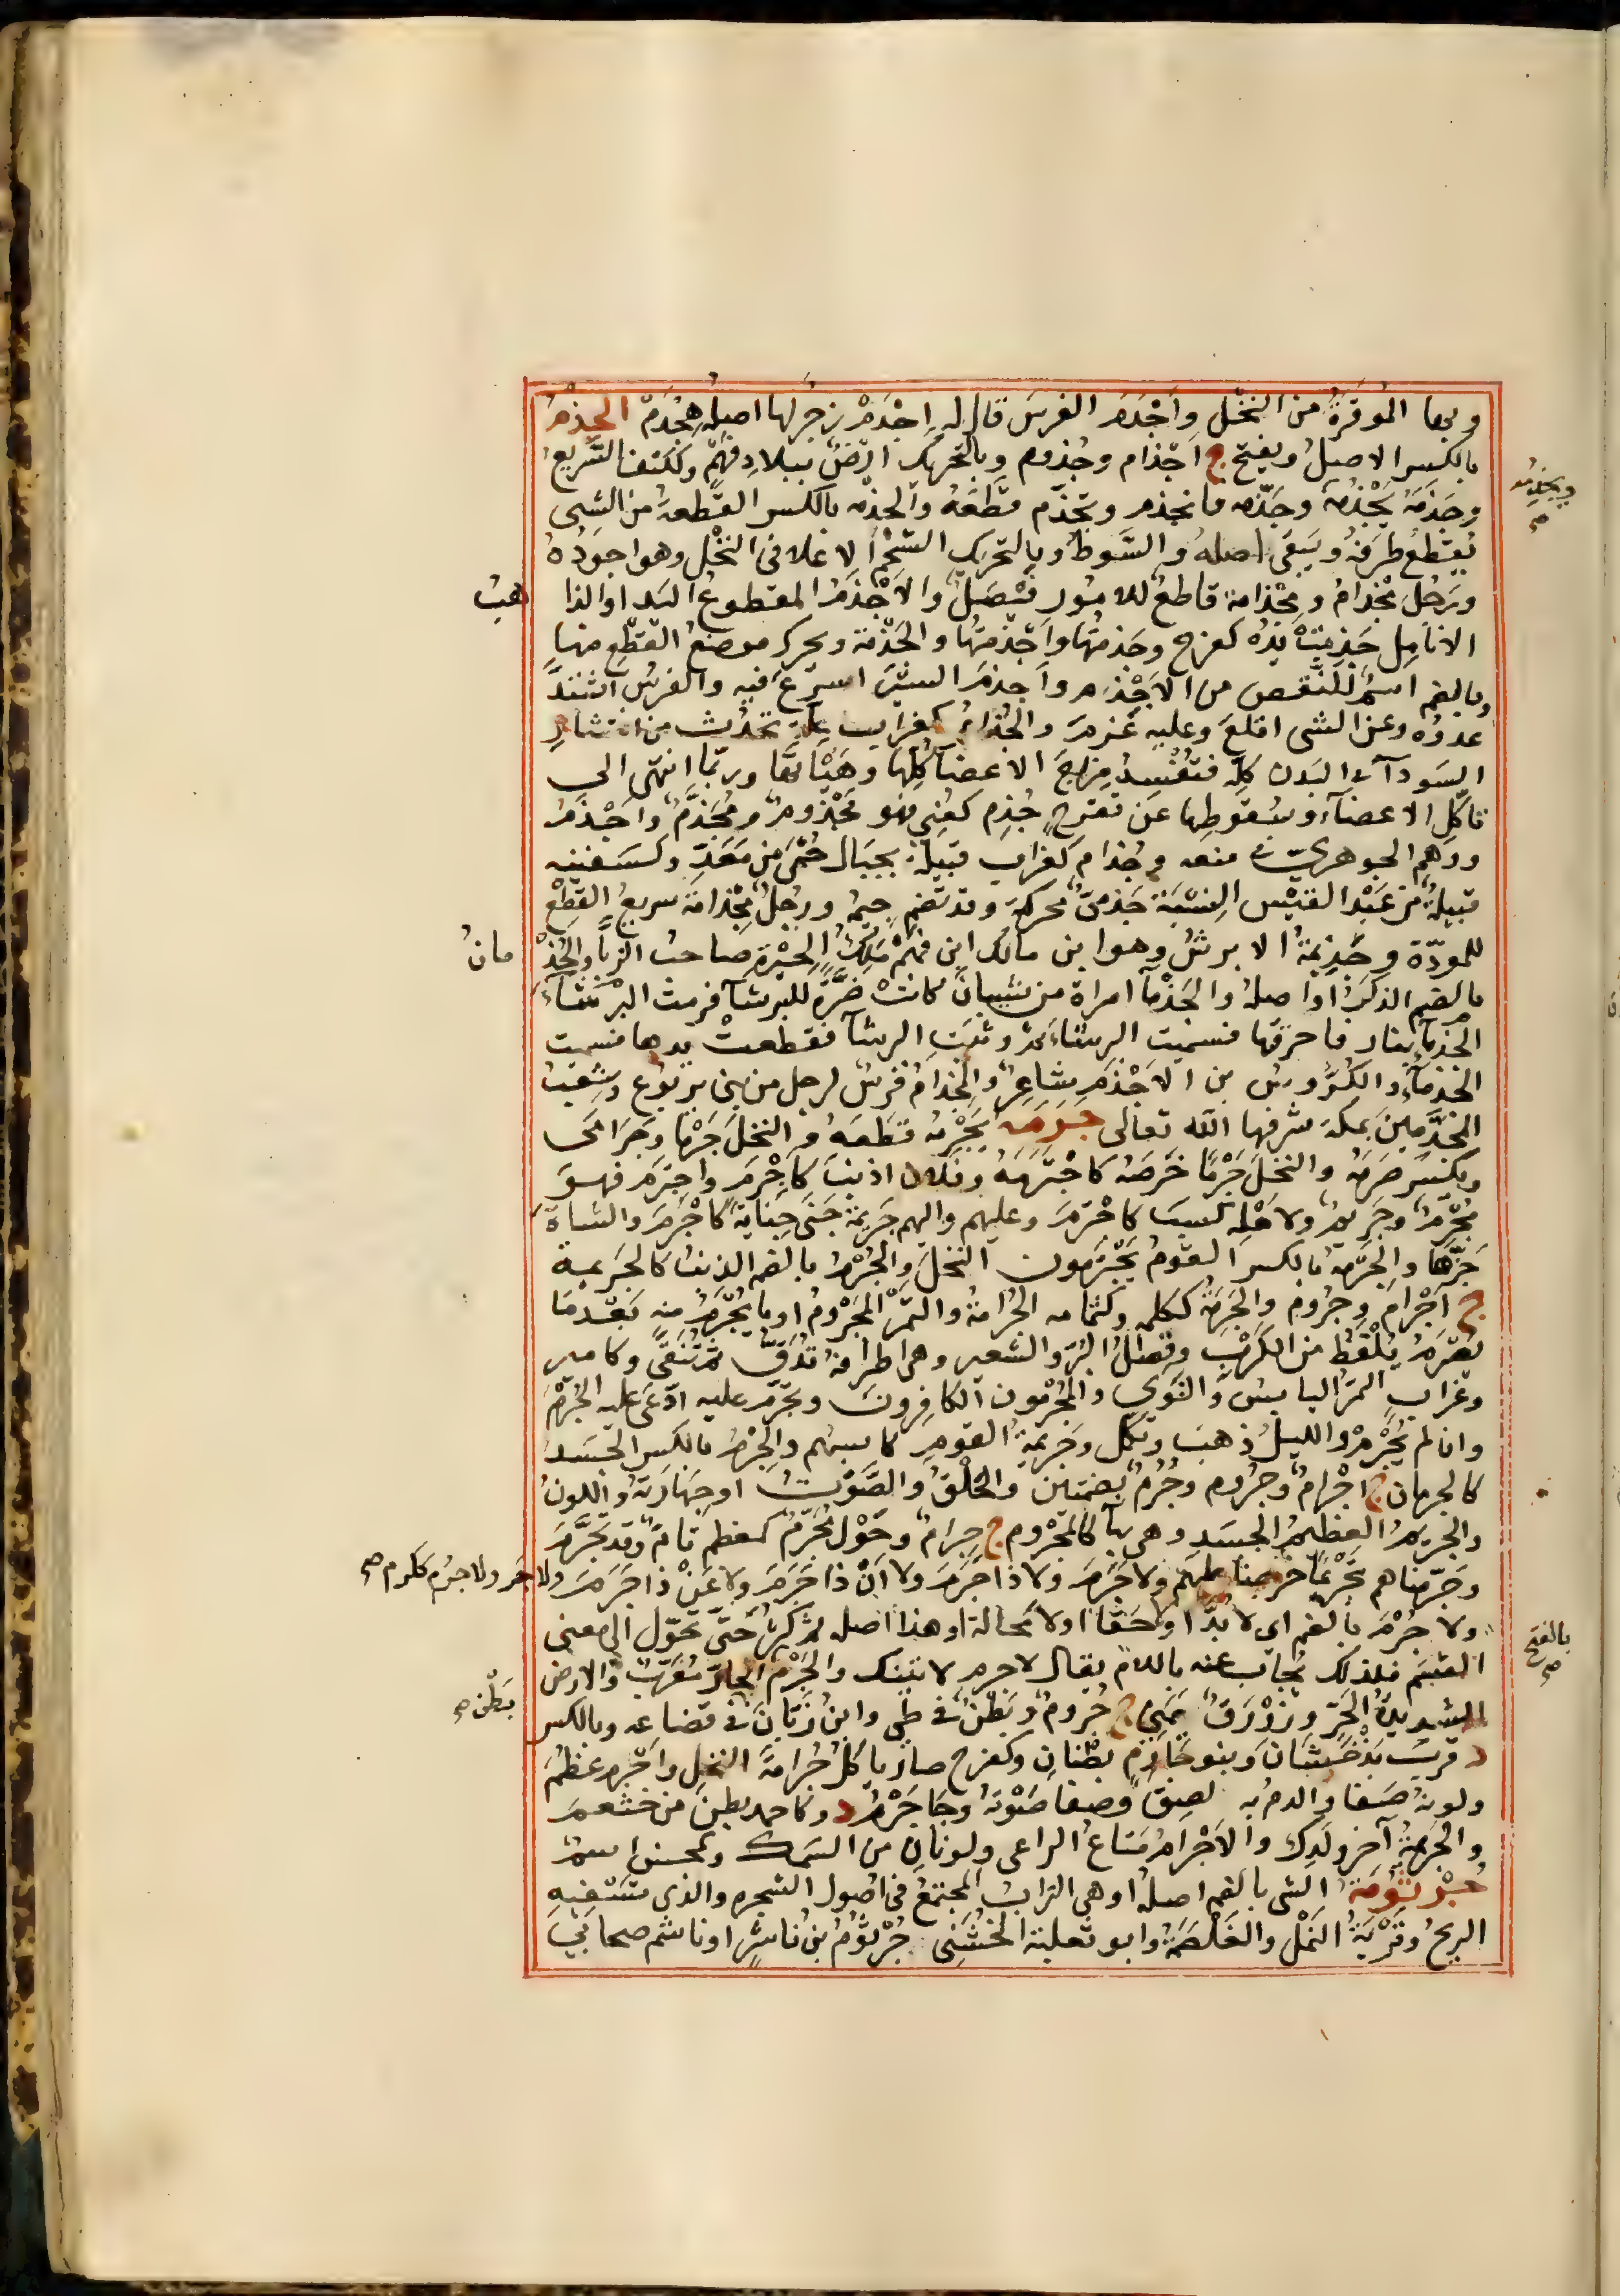 وبها الموقرة من النخل واجدم الفرس قال له اجدم زجر لها اصله هجدم الجذم
بالكسر الاصل ويفتح ج اجذام وجذوم وبالتحريك ارض ببلاد فهم وككتف السريع
وجذمه يجذمه وجذمه فانجذم وتجذم قطعه والجذمه بالكسر القطعة من الشي
يقتطع طرفه ويبقى اصله والسوط وبالتحريك الشحم الاعلا فى النخل وهو اجوده
ورجل مجذام ومجذامة قاطع للامور فيصل والاجذم المقطوع اليد او الذا
هب
الانامل جذمت يده كفرح وجذمتها واجذمتها والجذمة ويحرك موضع القطع منها
وبالضم اسم للنقص من الاجذم واجذم السير اسرع فيه والفرس اشتد
عدوه وعن الشى اقلع وعليه عزم والجذام كغراب علة تحدث من انتشار
السودآ فى البدن كله فتفسد مزاج الاعضآ كلها وهيئاتها وربما انتهى الى
تاكل الاعضآء وسقوطها عن تقرح جذم كعنى فهو مجذوم ومجذم واجذم
ووهم الجوهرى فى منعه وجذام كغراب قبيلة بجبال حسمى من معد وكسفينه
قبيلة من عبد القيس النسبة جذمى محركة وقد تضم جيمه ورجل مجذامة سريع القطع
للمودة وجذيمة الابرش وهو ابن مالك ابن فهم ملك الحيرة صاحب الزبآ والجذ
مان
بالضم الذكر او اصله والجذمآ امراة من شيبان كانت ضرة للبرشآ فرمت البرشآء
الجذمآ بنار فاحرقتها فسميت البرشآء ثم وثبت البرشآ فقطعت يدها فسميت
الجذمآء والكروس بن الاجذم شاعر والجذام فرس لرجل من بنى يربوع وشعب
المجذمين بمكة شرفها الله تعالى جرمه يجرمه قطعه والنخل جرما وجراما
ويكسر صرمه والنخل جرما خرصه كاجترمه وفلان اذنب كاجرم واجترم فهو
مجرم وجريم ولاهله كسب كاجترم وعليهم واليهم جريمة جنى جناية كاجرم والشاة
جزها والجرمة بالكسر القوم يجترمون النخل والجرم بالضم الذنب كالجريمة
ج اجرام وجروم والجرمة ككلمه وكثمامه الجرامة والتمر المجروم او ما يجرم منه بعدما
يصرم يلقط من الكرب وقصل البر والشعير وهى اطرافه تدق ثم تنقى وكامير
وغراب التمر اليابس والنوى والمجرمون الكافرون وتجرم عليه ادعى عليه الجرم
وان لم يجرم والليل ذهب وتكمل وجريمة القوم كاسبهم والجرم بالكسر الجسد
كالجرمان ج اجرام وجروم وجرم بضمتين والحلق والصوت او جهارته واللون
والجريم العظيم الجسد وهى بهآ كالمجروم ج جرام وحول مجرم كمعظم تام وقد تجرم
وجرمناهم تجريما خرجنا عنهم ولا جرم ولا ذا جرم ولا ان ذا جرم ولا عن ذا جرم
ولا جر ولا جرم ككرم صح
ولا جرم بالضم اى لا بد او حقا او لا محالة او هذا اصله ثم كثر حتى تحول الى معنى
القسم فلذلك يجاب عنه باللام يقال لا جرم لاتينك والجرم الحار معرب والارض
الشديدة الحر وزورق يمنى ج جروم وبطن فى طى وابن زبان فى قضاعه وبالكسر
د قرب بذخشان وبنو جارم بطنان وكفرح صار ياكل جرامة النخل واجرم عظم
ولونه صفا والدم به لصق وصفا صوته وجاجرم د وكاحمد بطن من خثعم
والجريمة آخر ولدك والاجرام متاع الراعى ولونان من السمك وكمحسن اسم
جرثومة الشى بالضم اصله او هى التراب المجتمع فى اصول الشجره والذى تسفيه
الريح وقرية النمل والغلصمة وابو ثعلبة الخشنى جرثوم بن ناشر او ناشم صحابى
ويجذمه صح
بالفتح صح
بطن صح